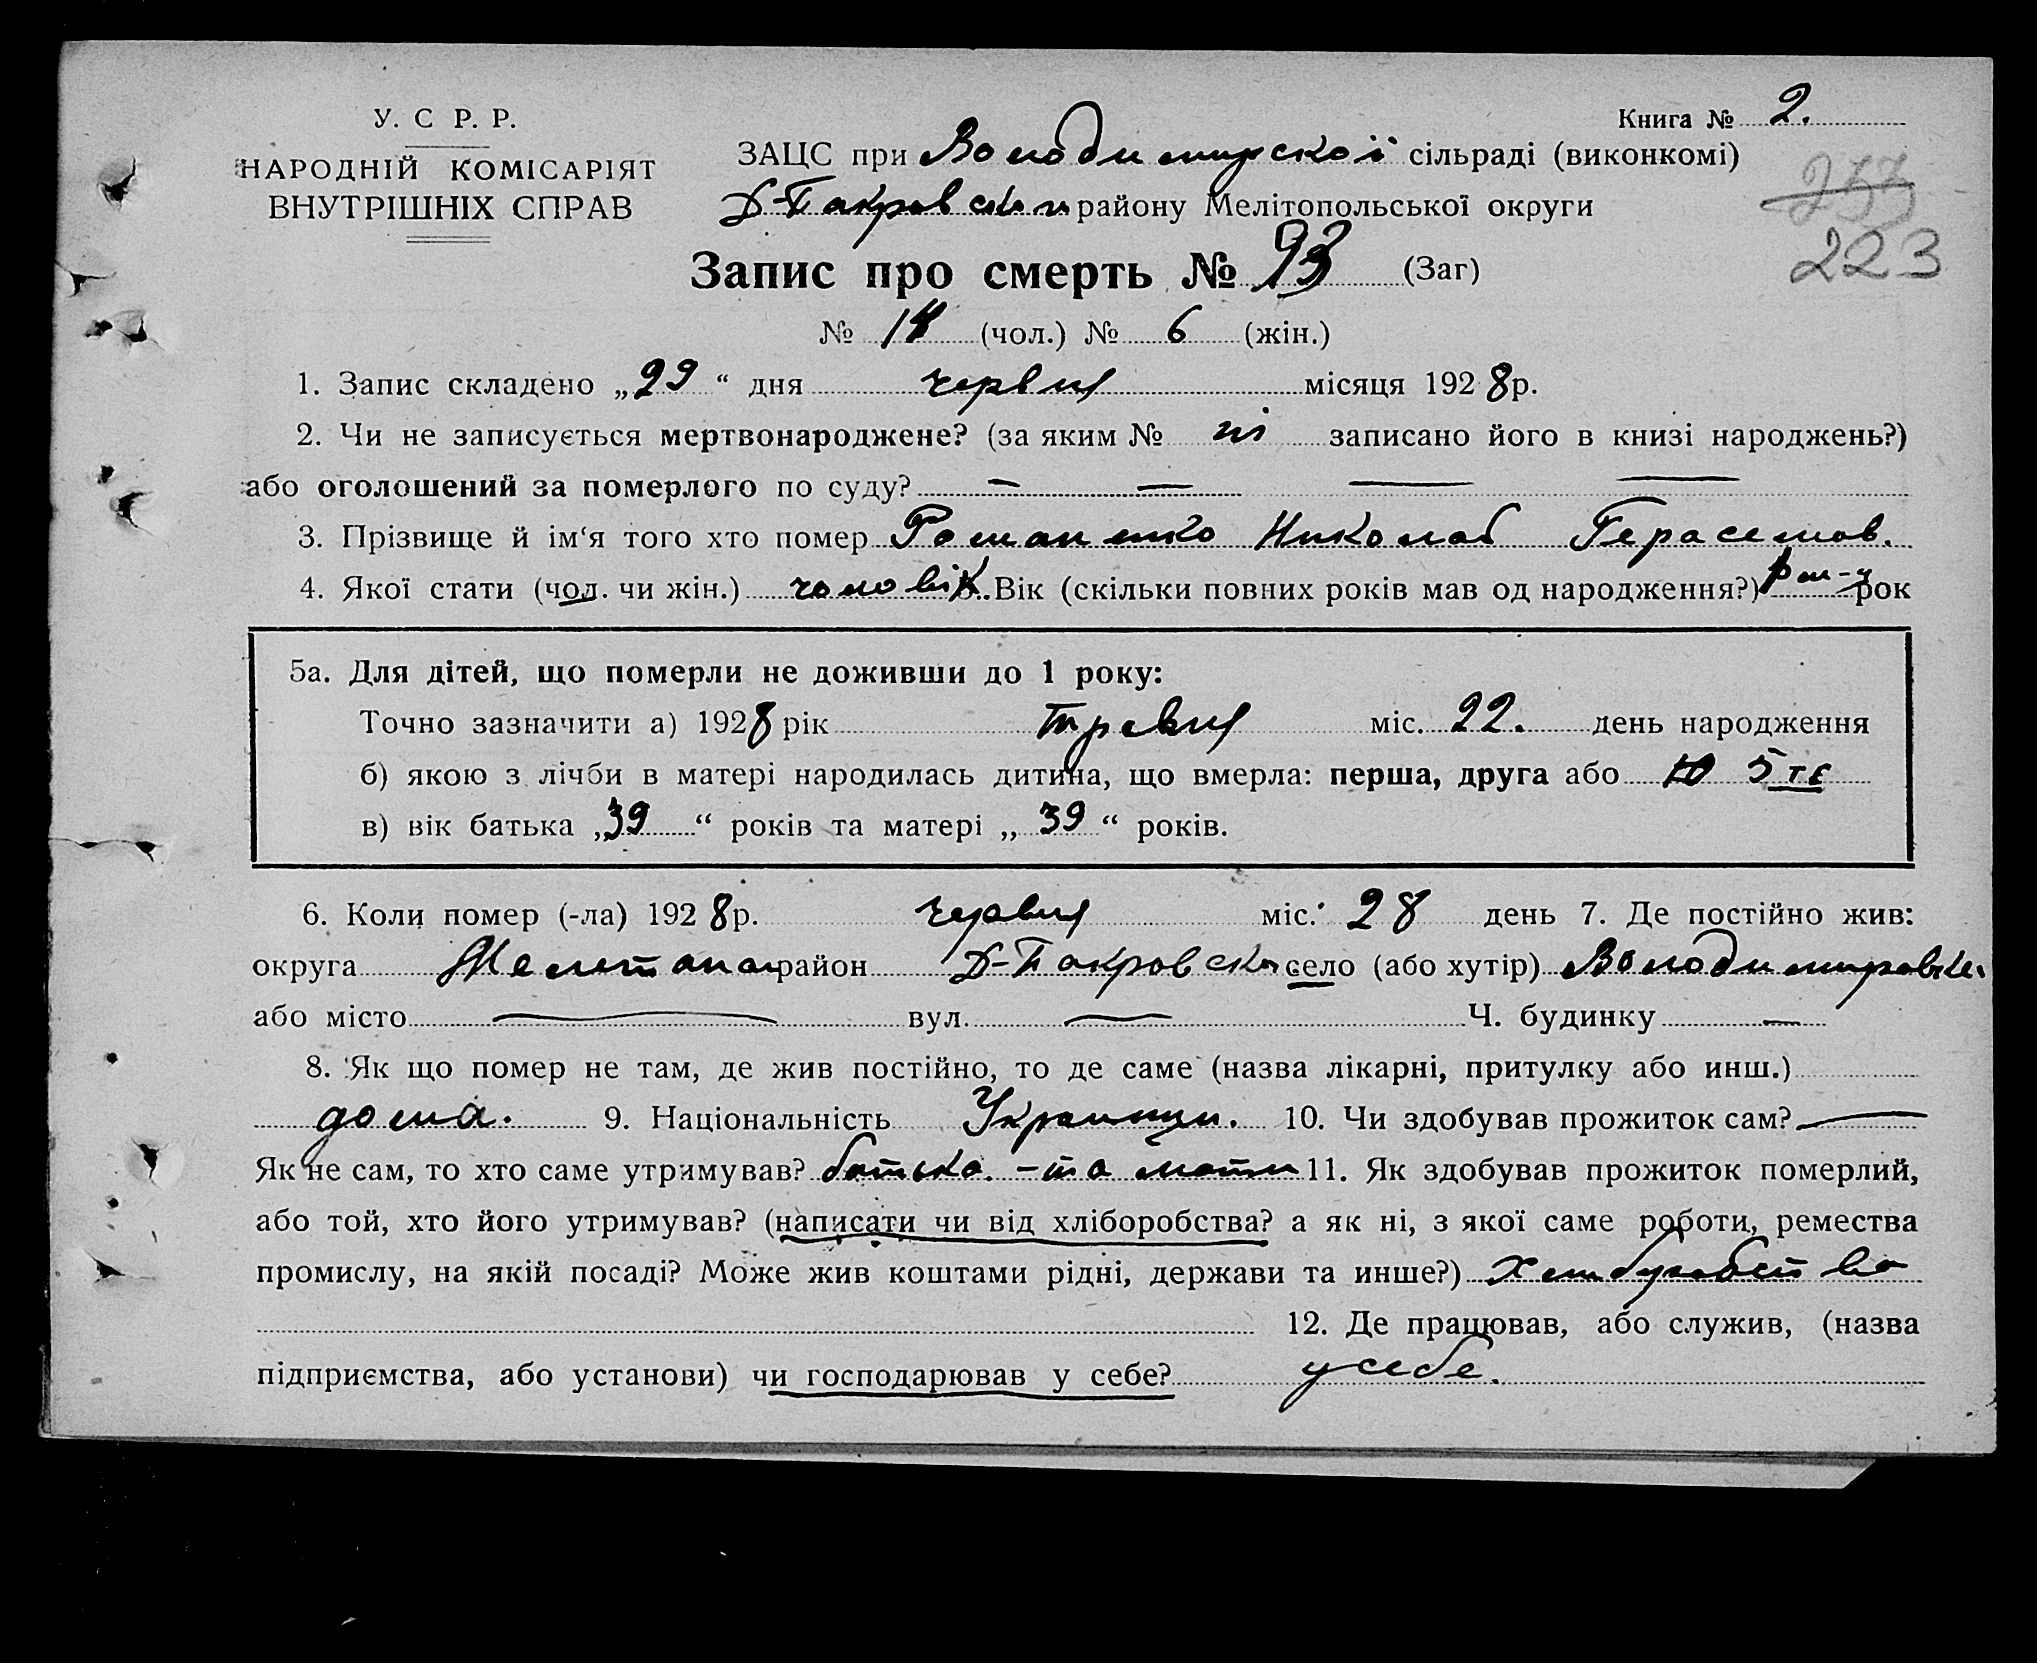 У. С Р. Р.
НАРОДНІЙ КОМІСАРІЯТ
ВНУТРІШНІХ СПРАВ
Книга № 2.
ЗАЦС при Володимирской сільраді (виконкомі)
277
Д-Покровским району Мелітопольської округи
223
Запис про смерть № (Заг)
№ 14 (чол.) № 6 (жін.)
1. Запис складено „29“ дня червня місяця 1928р.
2. Чи не записується мертвонароджене? (за яким № ні записано його в книзі народжень?)
або оголошений за померлого по суду? — — — —
3. Прізвище й ім‘я того хто помер Романенко Николаб Герасемов.
4. Якої стати (чол. чи жін.) чоловік. Вік (скільки повних років мав од народження?) рок
5а. Для дітей, що померли не доживши до 1 року:
Точно зазначити а) 1928 рік травня міс. 22. день народження
б) якою з лічби в матері народилась дитина, що вмерла: перша, друга або 5 тє
в) вік батька „39“ років та матері „39“ років.
6. Коли помер (-ла) 1928р. червня міс. 28 день 7. Де постійно жив:
округа Мелетопол район Д-Покровском село (або хутір) Володимировке
або місто — вул. — Ч. будинку —
8. Як що помер не там, де жив постійно, то де саме (назва лікарні, притулку або инш.)
дома. 9. Національність Украинци. 10. Чи здобував прожиток сам? —
Як не сам, то хто саме утримував? батько. - та мати 11. Як здобував прожиток померлий,
або той, хто його утримував? (написати чи від хліборобства? а як ні, з якої саме роботи, ремества
промислу, на якій посаді? Може жив коштами рідні, держави та инше?)
12. Де працював, або служив, (назва
підприємства, або установи) чи господарював у себе? у себе.